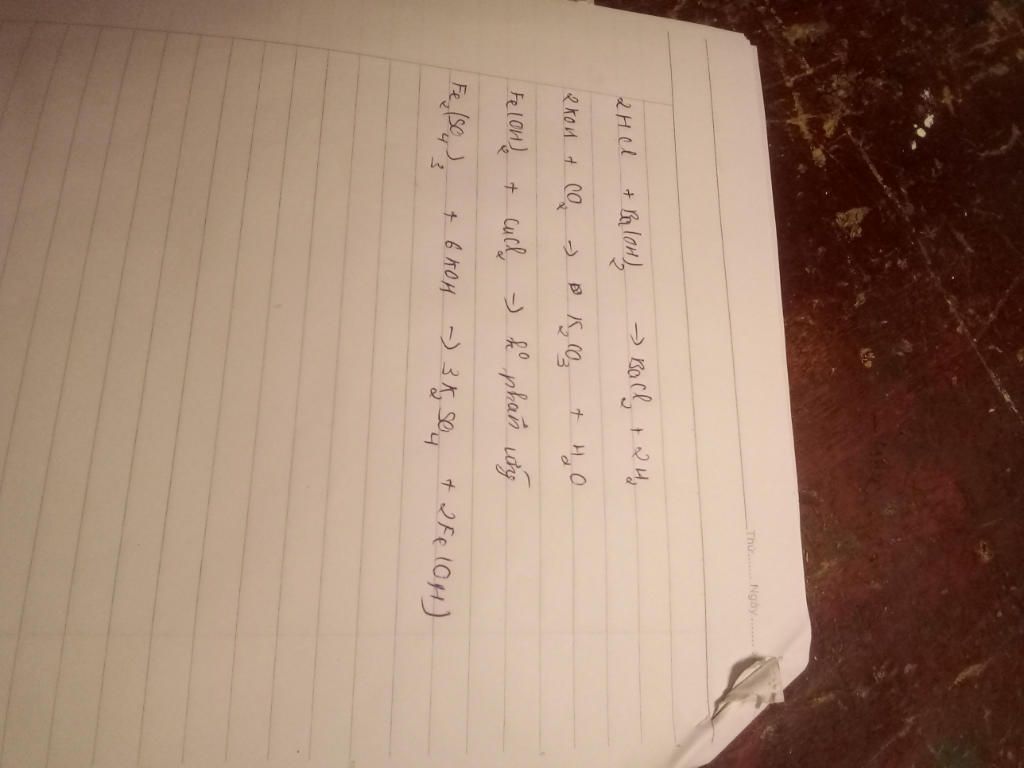 Thứ........ Ngày........
2HCl + Ba(OH)2 -> BaCl2 + 2H2
2KOH + CO2 -> K2CO3 + H2O
Fe(OH)2 + CuCl2 -> ko phản ứng
Fe2(SO4)3 + 6KOH -> 3K2SO4 + 2Fe(OH)